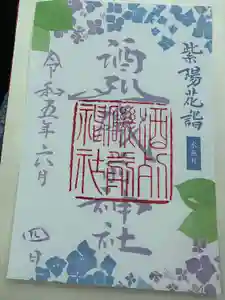 紫陽花詣
水無月
酒列磯前神社
酒列
磯前
神社
令和五年六月
四日